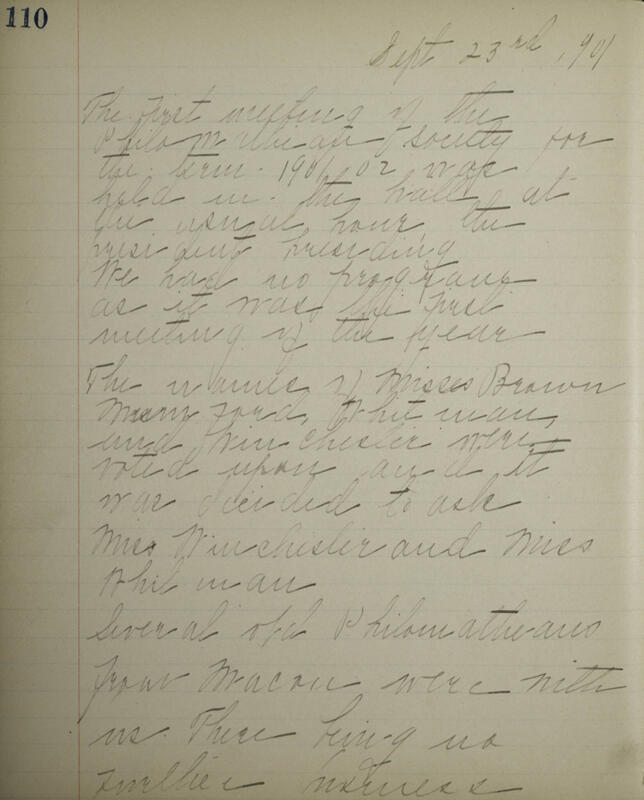 110
Sept 23rd, 1901
The first meeting of the
Philomathean Society for
the term 1901, 02 was
held in the hall at
the usual hour, the
president presiding
We had no program
as it was the first
meeting of the year
The names of Misses Brown
Ford, Whitman,
and Winchester were
voted upon and it
was decided to ask
Miss Winchester and Miss
Whitman
Several old Philomatheans
from Macon were with
us. There being no
further business